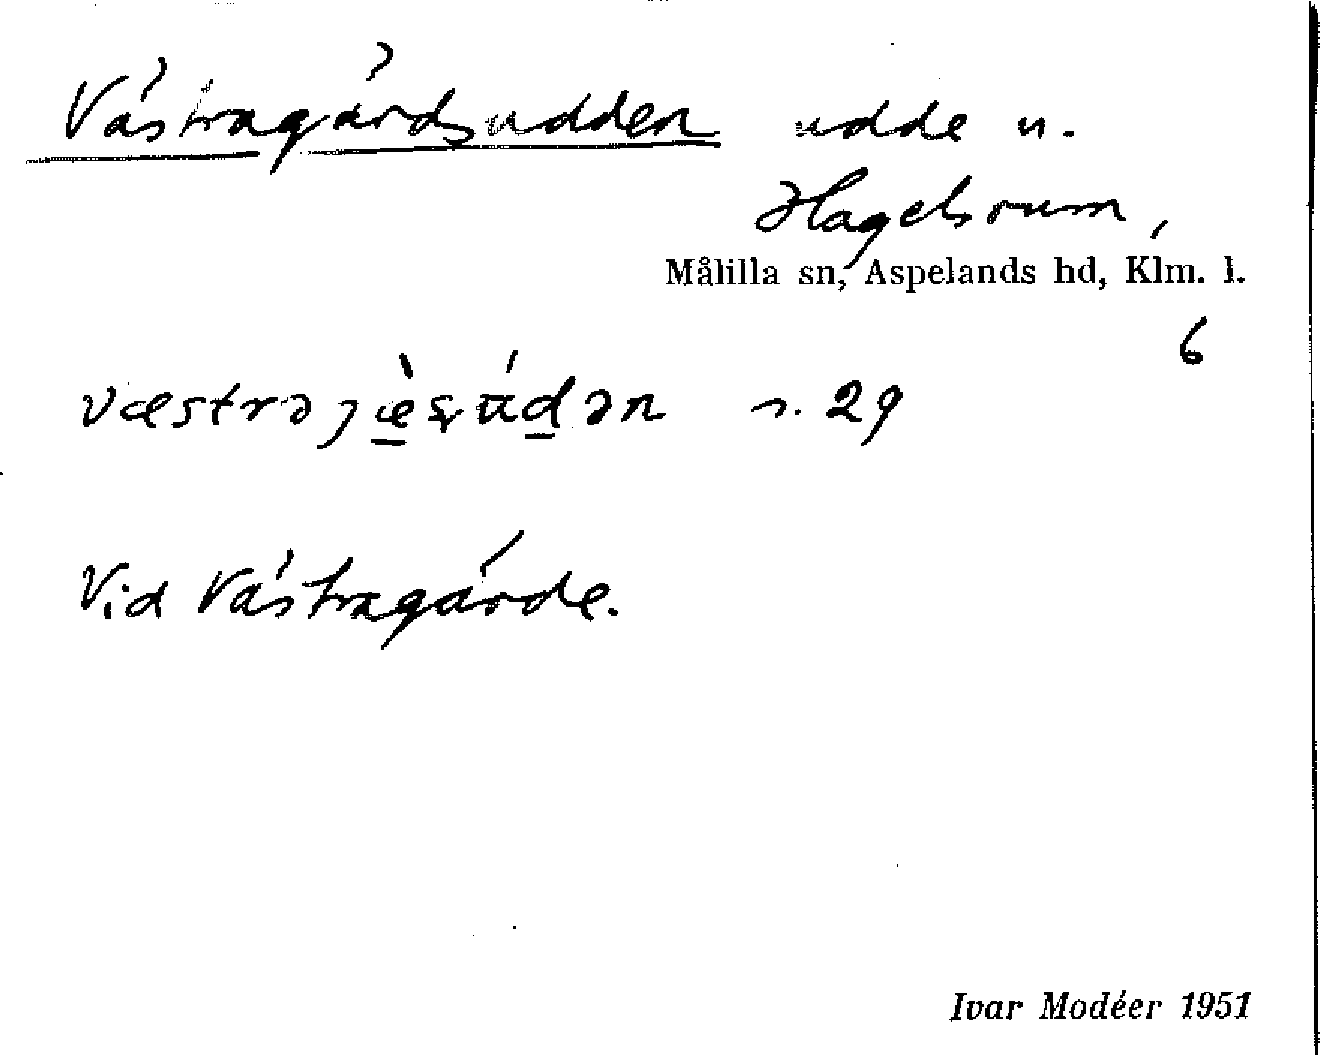 Västragärdsudden udde u.
Hagelsrum,
Målilla sn, Aspelands hd, Klm. l.
6
væstrəȷæ̀ʂúdən s. 29
Vid Västragärde.
Ivar Modéer 1951